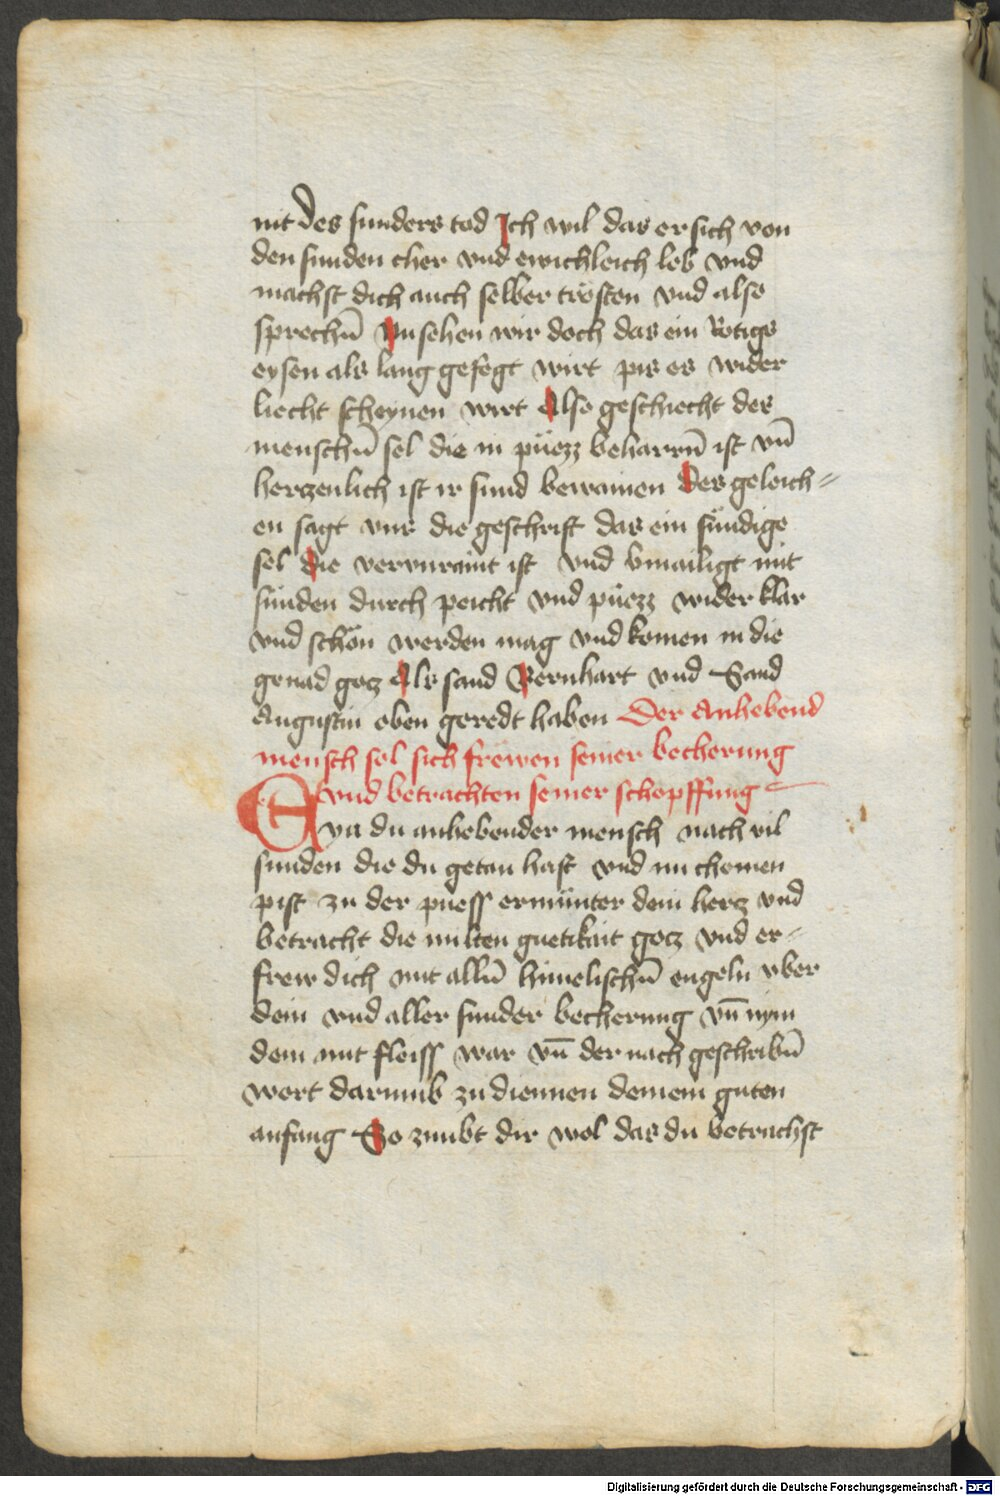 nit des sunders tod Ich wil das er sich von
den sunden cher vnd ewichleich leb vnd
machst dich auch selber trösten vnd also
sprechn̄ Nu sehen wir doch das ein Rotigs
eysen als lang gefegt wirt pis es wider
liecht scheynen wirt Also geschiecht des
menschn̄ sel die in püezz beharrn̄ ist vn̄
herczenlich ist ir sund bewainen Des geleich=
en sagt vns die geschrift das ein sündige
sel die verunraint ist vnd vmailigt mit
sünden durch peicht vnd püezz wider klar
vnd schön werden mag vnd komen in die
genad gocz Als sand Bernhart vnd Sand
Augustin oben geredt haben Der Anhebend
mensch sol sich frewen seiner becherung
vnd betrachten seiner schepffung
Eya du anhebender mensch nach vil
sunden die du getan hast vnd nu chomen
pist zu der puess ermünter dein hercz vnd
betracht die milten guetikait gocz vnd er=
frew dich mit alln̄ himelischn̄ engeln vber
dein vnd aller sunder becherung vn̄ nym
dem mit fleiss war vn̄ der nach geschribn̄
wort darumb zu diennen deinem guten
anfang So zimbt dir wol das du betrachst
Digitalisierung gefördert durch die Deutsche Forschungsgemeinschaft - DFG